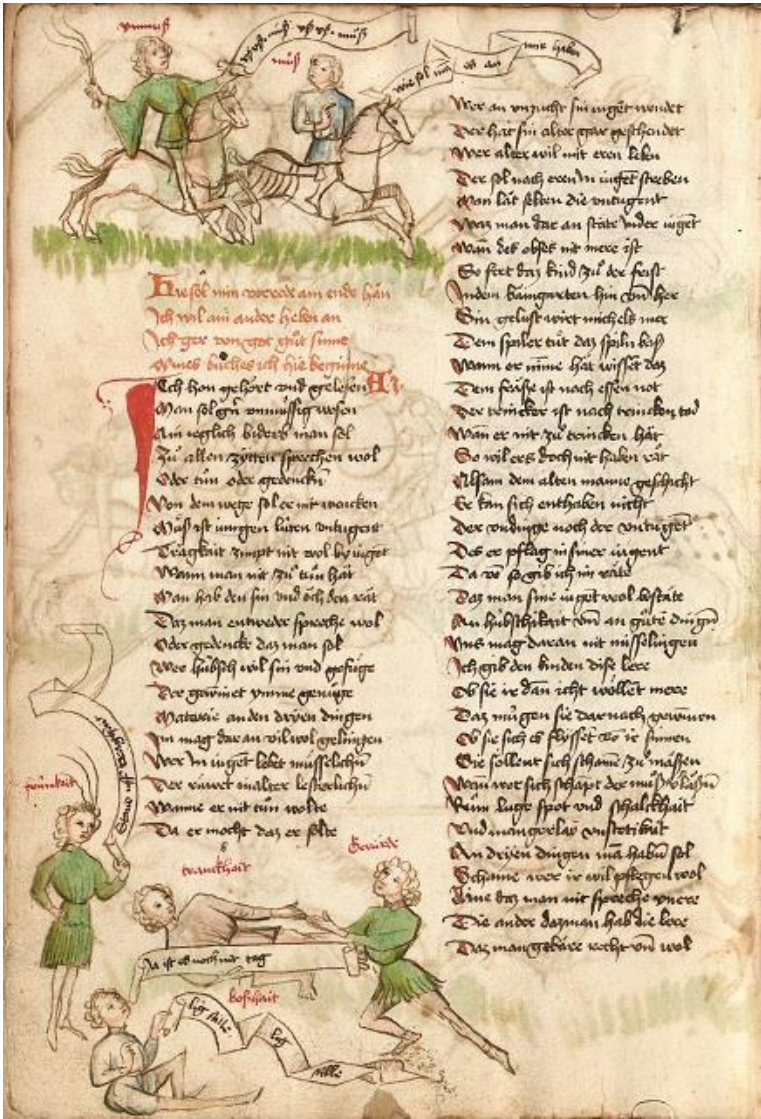 vnmuͦß
vff vff muͦß vff vff muͦß
muͦß
wie sol mã es an
mir haben
Hie sol min vorrede ain ende hãn
Ich wil ain ander heben an
Ich ger von got guͦt sinne
Mines buͦches ich hie beginne
Ich hon gehoͤrt vnd gelesen
Man sol gñ vnmuͤssig wesen
Ain yeglich biderb man sol
Zuͦ allen zytten sprechen wol
Oder tuͦn oder gedenckñ
Von dem wege sol er nit wencken
Muͦß ist iungen luͤten vntugent
Tragkait zimpt nit wol by iugẽt
Wann man nit zuͦ tuͦn hăt
Man hab den sin vnd oͮch den răt
Daz man entweder spreche wol
Oder gedencke daz man sol
Wer huͤbsch wil sin vnd gefuͤge
Der gewinet ymme genuͤge
Materie an den dryen dingen
Im mag dar an vil wol gelingen
Wer in iugent lebet muͤsselichñ
Der ruwet in alter lesterlichñ
Wanne er nit tuͦn wolte
Da er mocht daz er solte
Wer an vnzucht sin iugẽt wendet
Der hăt sin alter gar geschendet
Wer alter wil mit eren leben
Der sol nach eren in iugẽt streben
Man lăt selten die vntugent
Waz man dar an stăte in der iugẽt
Wañ des obses nit mere ist
So fert daz kind zuͦ der frist
In dem baumgarten hin vñ her
Sin gelust wirt michels mer
Dem spiler tuͦt daz spiln baß
Wann er nim̃e hăt wisset daz
Dem frăße ist nach essen not
Der trincker ist nach trincken tod
Wañ er nit zuͦ trincken hăt
So wil ers doch nit haben răt
Alsam dem alten manne geschicht
Er kan sich enthaben nicht
Der vndinge noch der vntugẽt
Des er pflag in siner iugent
Da võ so gib ich im răte
Daz man sine iuget wol bestăte
An huͤbschikait vñ an guͤtẽ dingñ
Vns mag daran nit misselingen
Ich gib den kinden dise lere
Ob sie ir dañ icht woͤllent mere
Daz muͤgen sie dar nach gewinnen
Ob sie sich es flysset vor ir sinnen
Sie sollent sich schame zuͦ măssen
Wañ wer sich schămpt der muͦß lăssñ
Ruͦm luge spot vnd schalckhait
Vnd mangerlay vnstetikait
An dryen dingen mã habñ sol
Schame wer ir wil pflegen wol
Aine daz man nit spreche vnere
Die ander daz man hab die lere
Daz man gebăre recht vñ wol
frumkait
kranckhait
Ia ist es noch nit tag
boßhait
lig stille
lig
stille